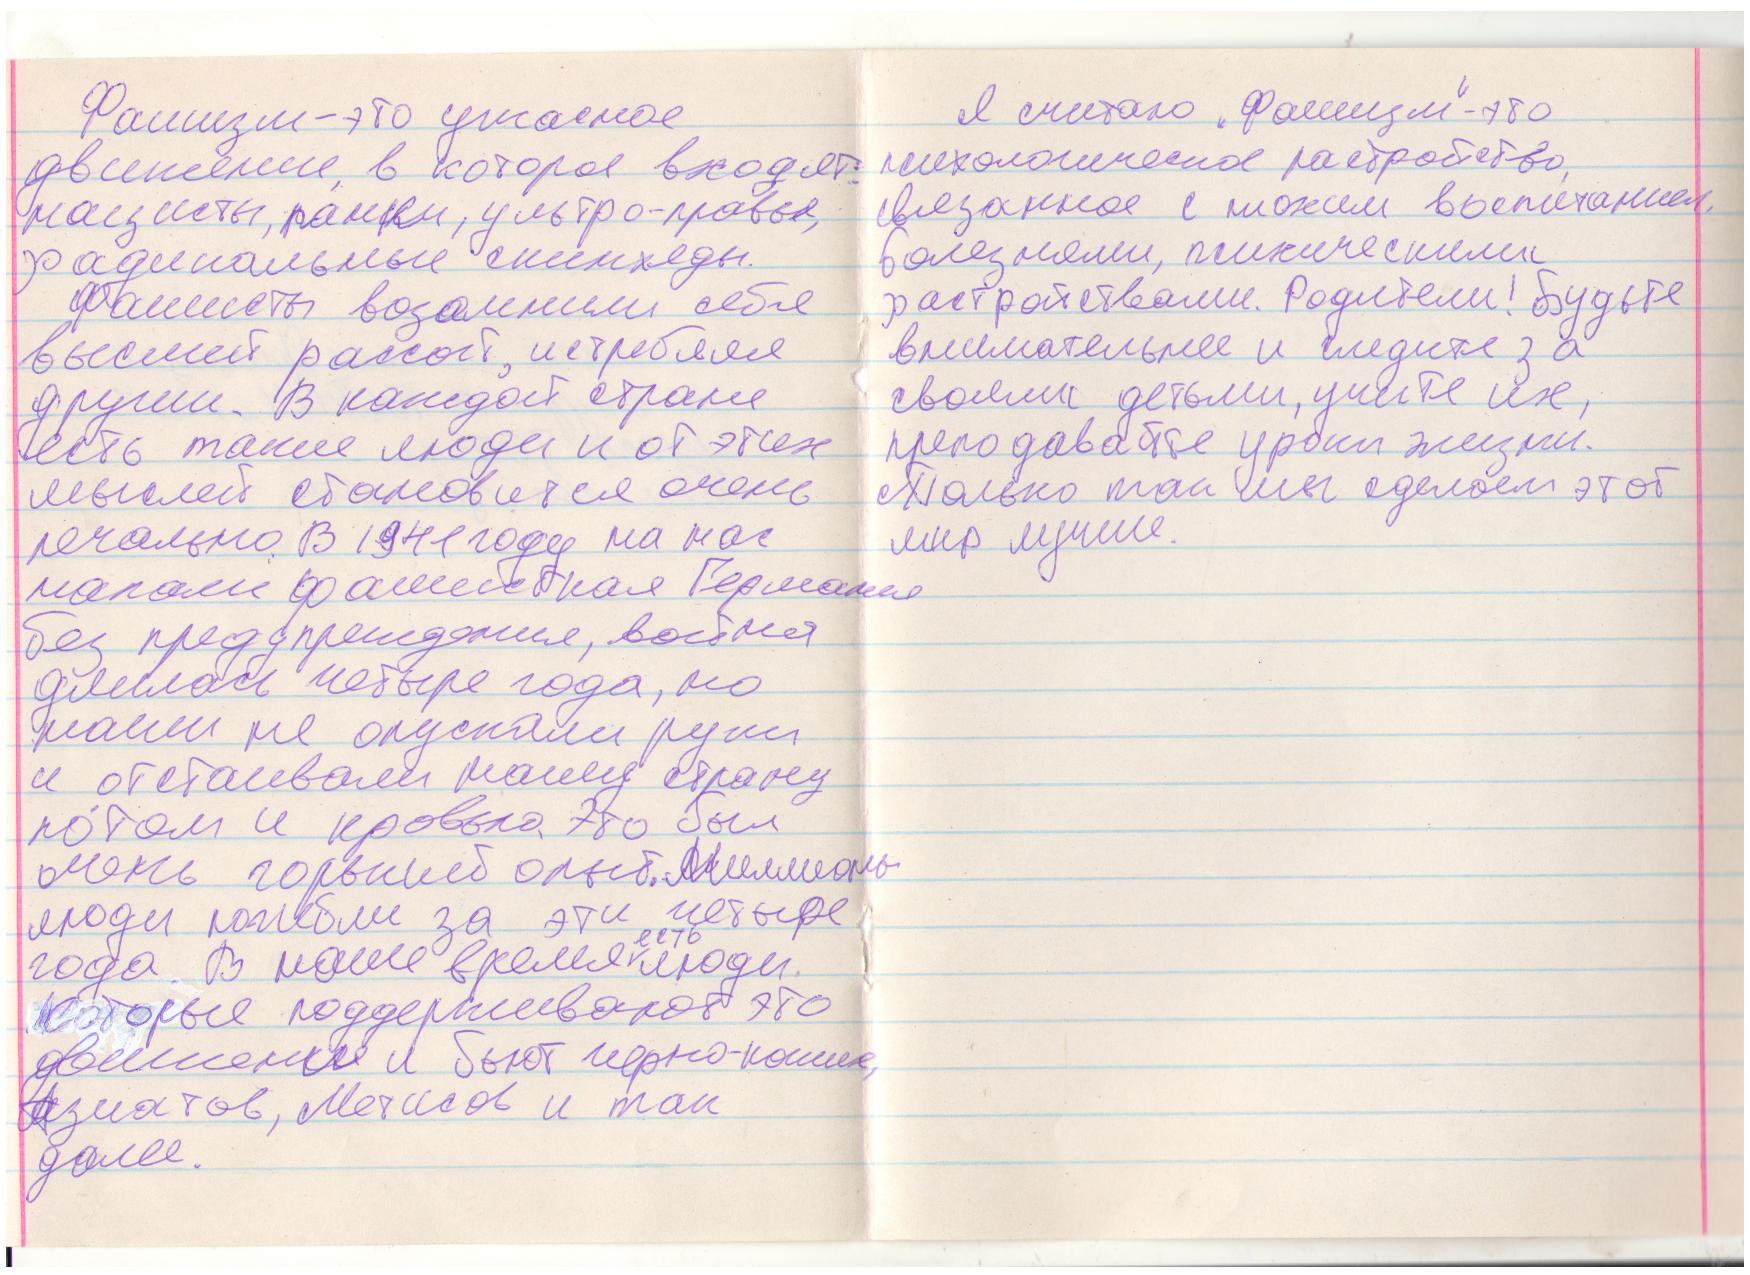 Фашизм-это ужасное
движение, в которое входят:
нацисты, панки, ультро-правые,
радикальные скинхеды.
Фашисты возомнили себя
высшей рассой, истребляя
других. В каждой стране
есть такие люди и от этих
мыслей становится очень
печально. В 1941 году на нас
напали фашисткая Германия
без предупреждения, война
длилась четыре года, но
наши не опускали руки
и отстаивали нашу страну
по́том и кровью. Это был
очень горький опыт. Миллионы
люди погибли за эти четыре
года. В наше время есть люди.
которые поддерживают это
движение и бьют черно-кожих,
Азиатов, Метисов и так
далее.
Я считаю „Фашизм“-это
психологическое растройство,
связанное с плохим воспитанием,
болезнями, психическими
растройствами. Родители! Будьте
внимательнее и следите за
своими детьми, учите их,
преподавайте уроки жизни.
Только так мы сделаем этот
мир лучше.